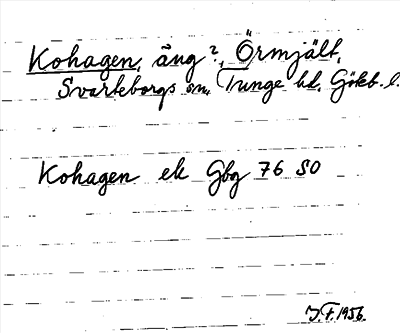 Kohagen, äng?, Örmjält,
Svarteborgs sn, Tunge hd, Götb. l.
Kohagen ek Gbg 76 SO
J.F. 1956.